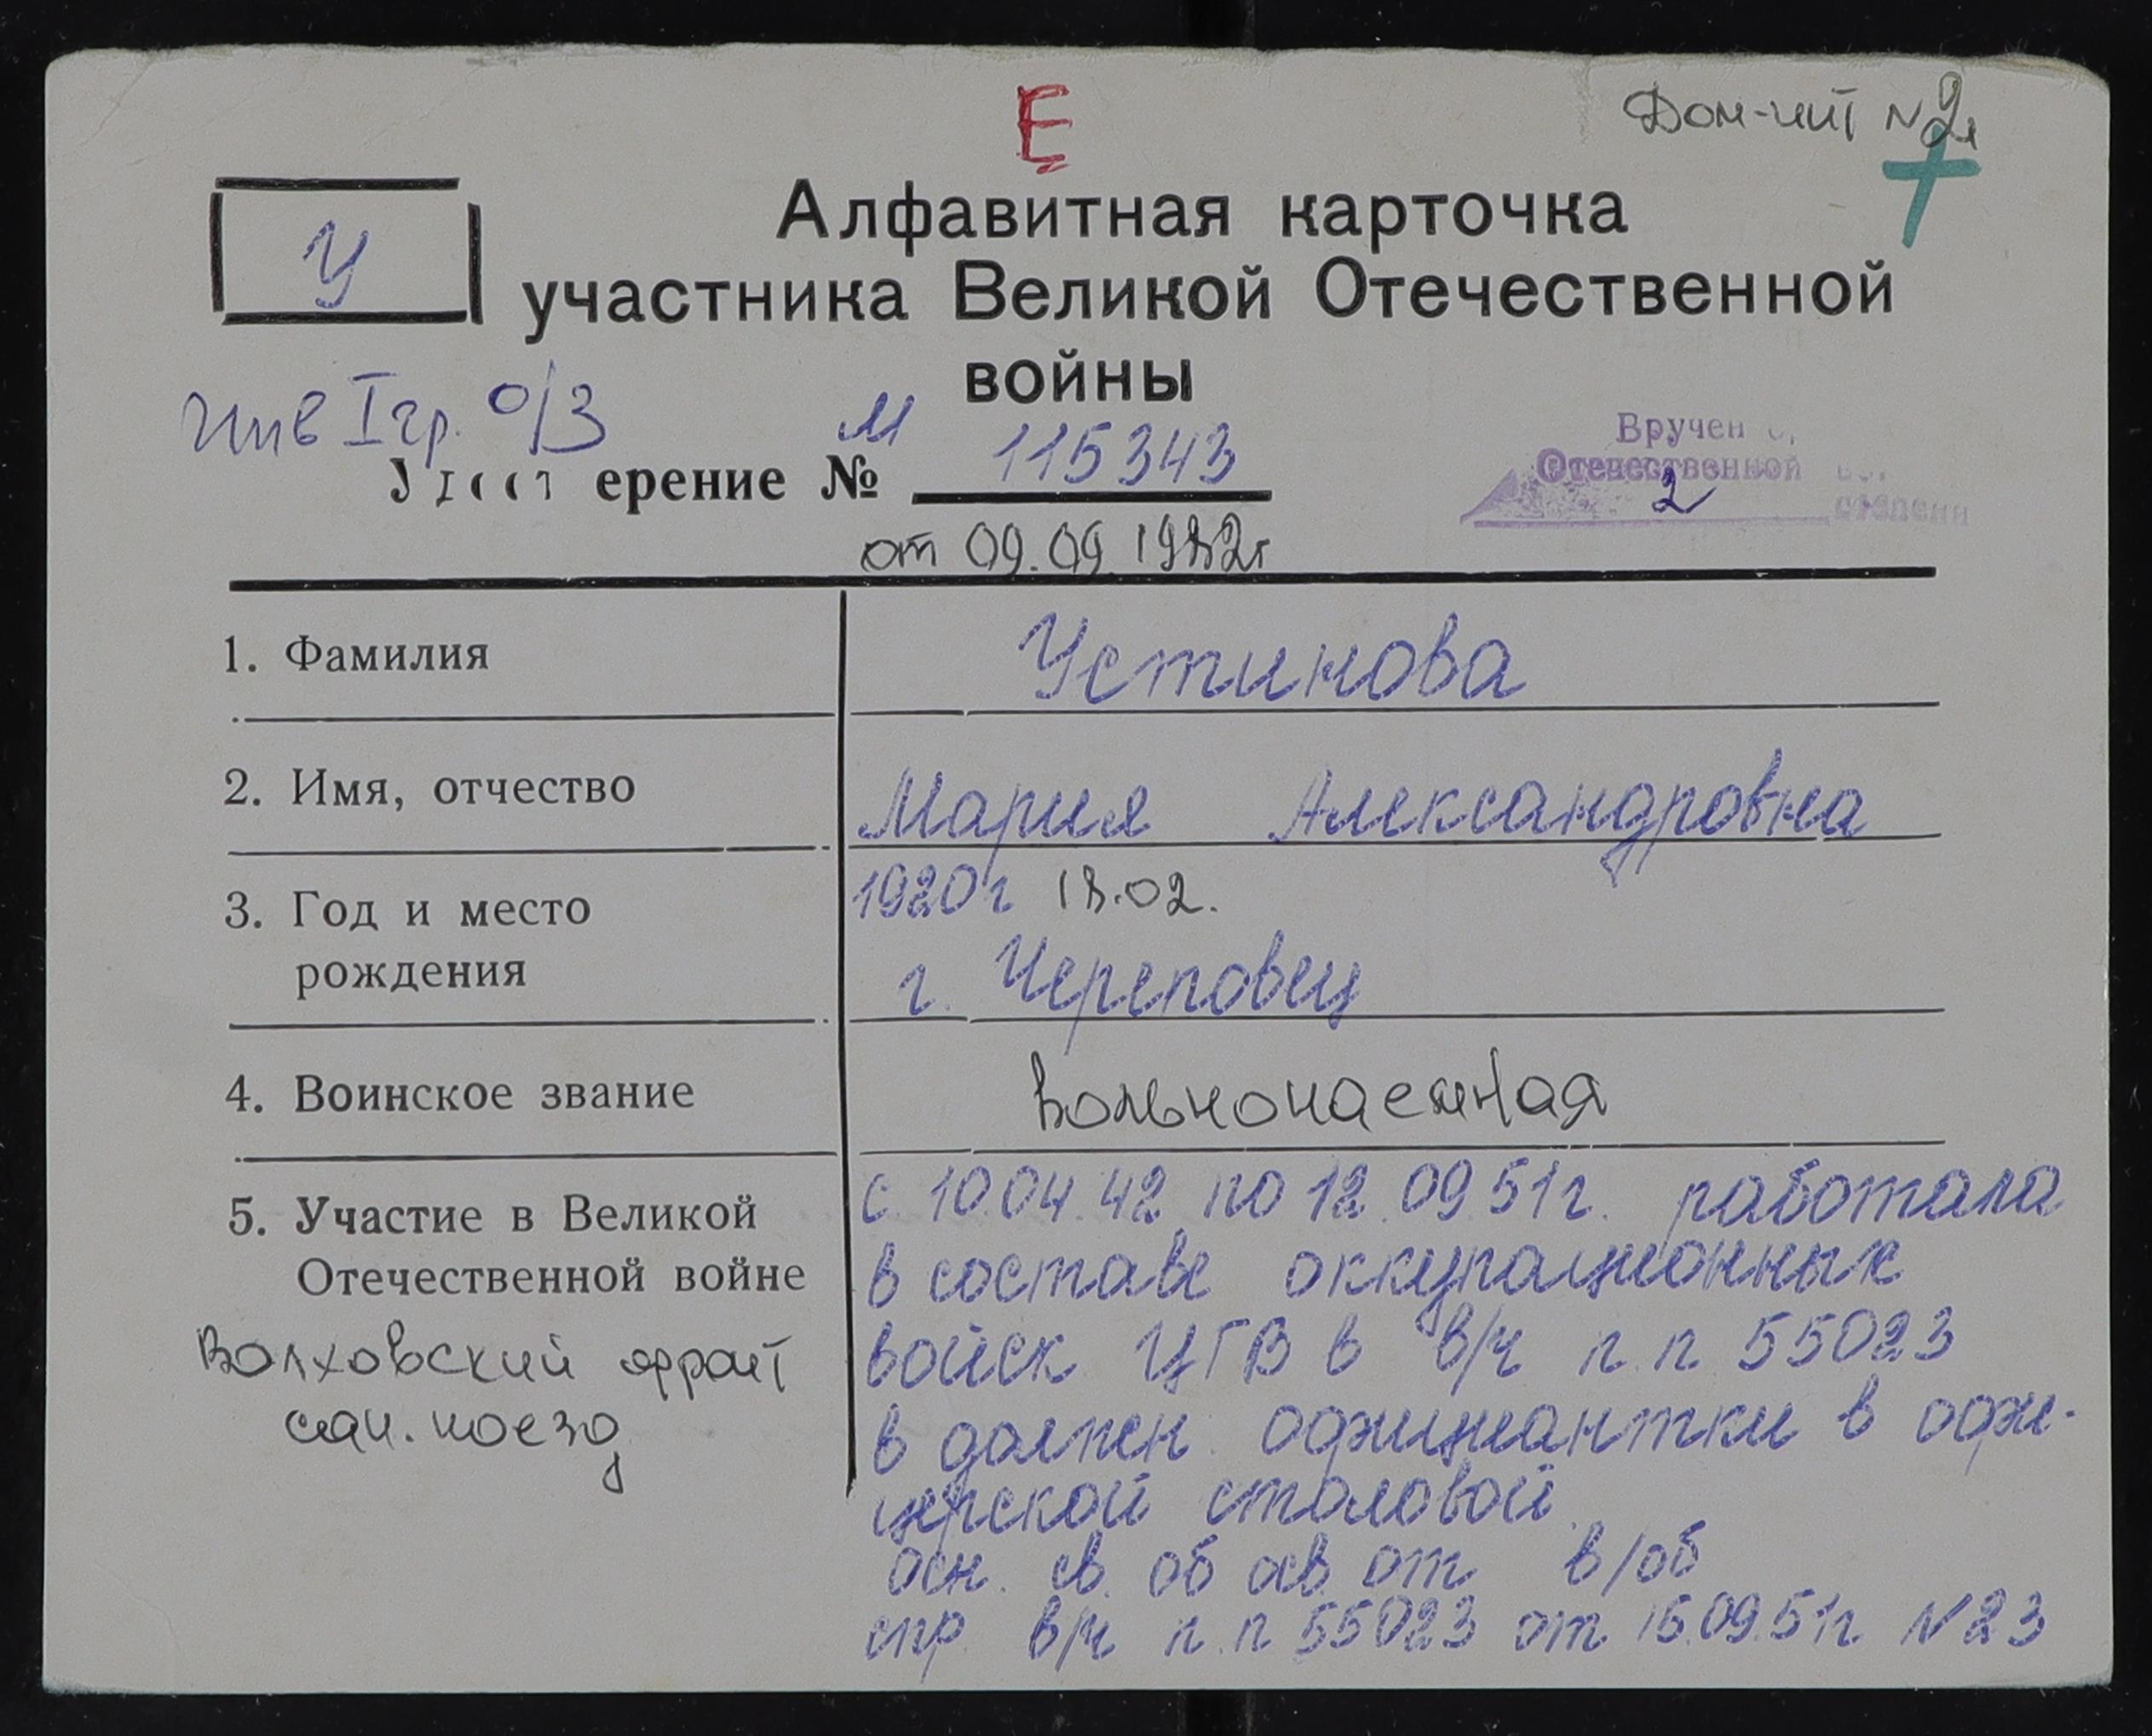 Е
Дом-инт N2
У
Алфавитная карточка
участника Великой Отечественной
войны
Инв I гр. о/з
М
ерение № 115343
от 09.09.1982г
Вручен
Отечественной
2
степени
1. Фамилия
Устинова
2. Имя, отчество
Мария Александровна
3. Год и место
рождения
1920 г 18.02.
г. Череповец
4. Воинское звание
вольнонаемная
5. Участие в Великой
Отечественной войне
Волховский фронт
сан. поезд
с 10.04.42 по 12.09.51г. работала
в составе оккупационных
войск ЦГВ в в/ч п.п 55023
в должен. официантки в офи-
церской столовой.
осн. св. об осв. от в/об
спр. в/ч п.п 55023 от 15.09.51г N 23